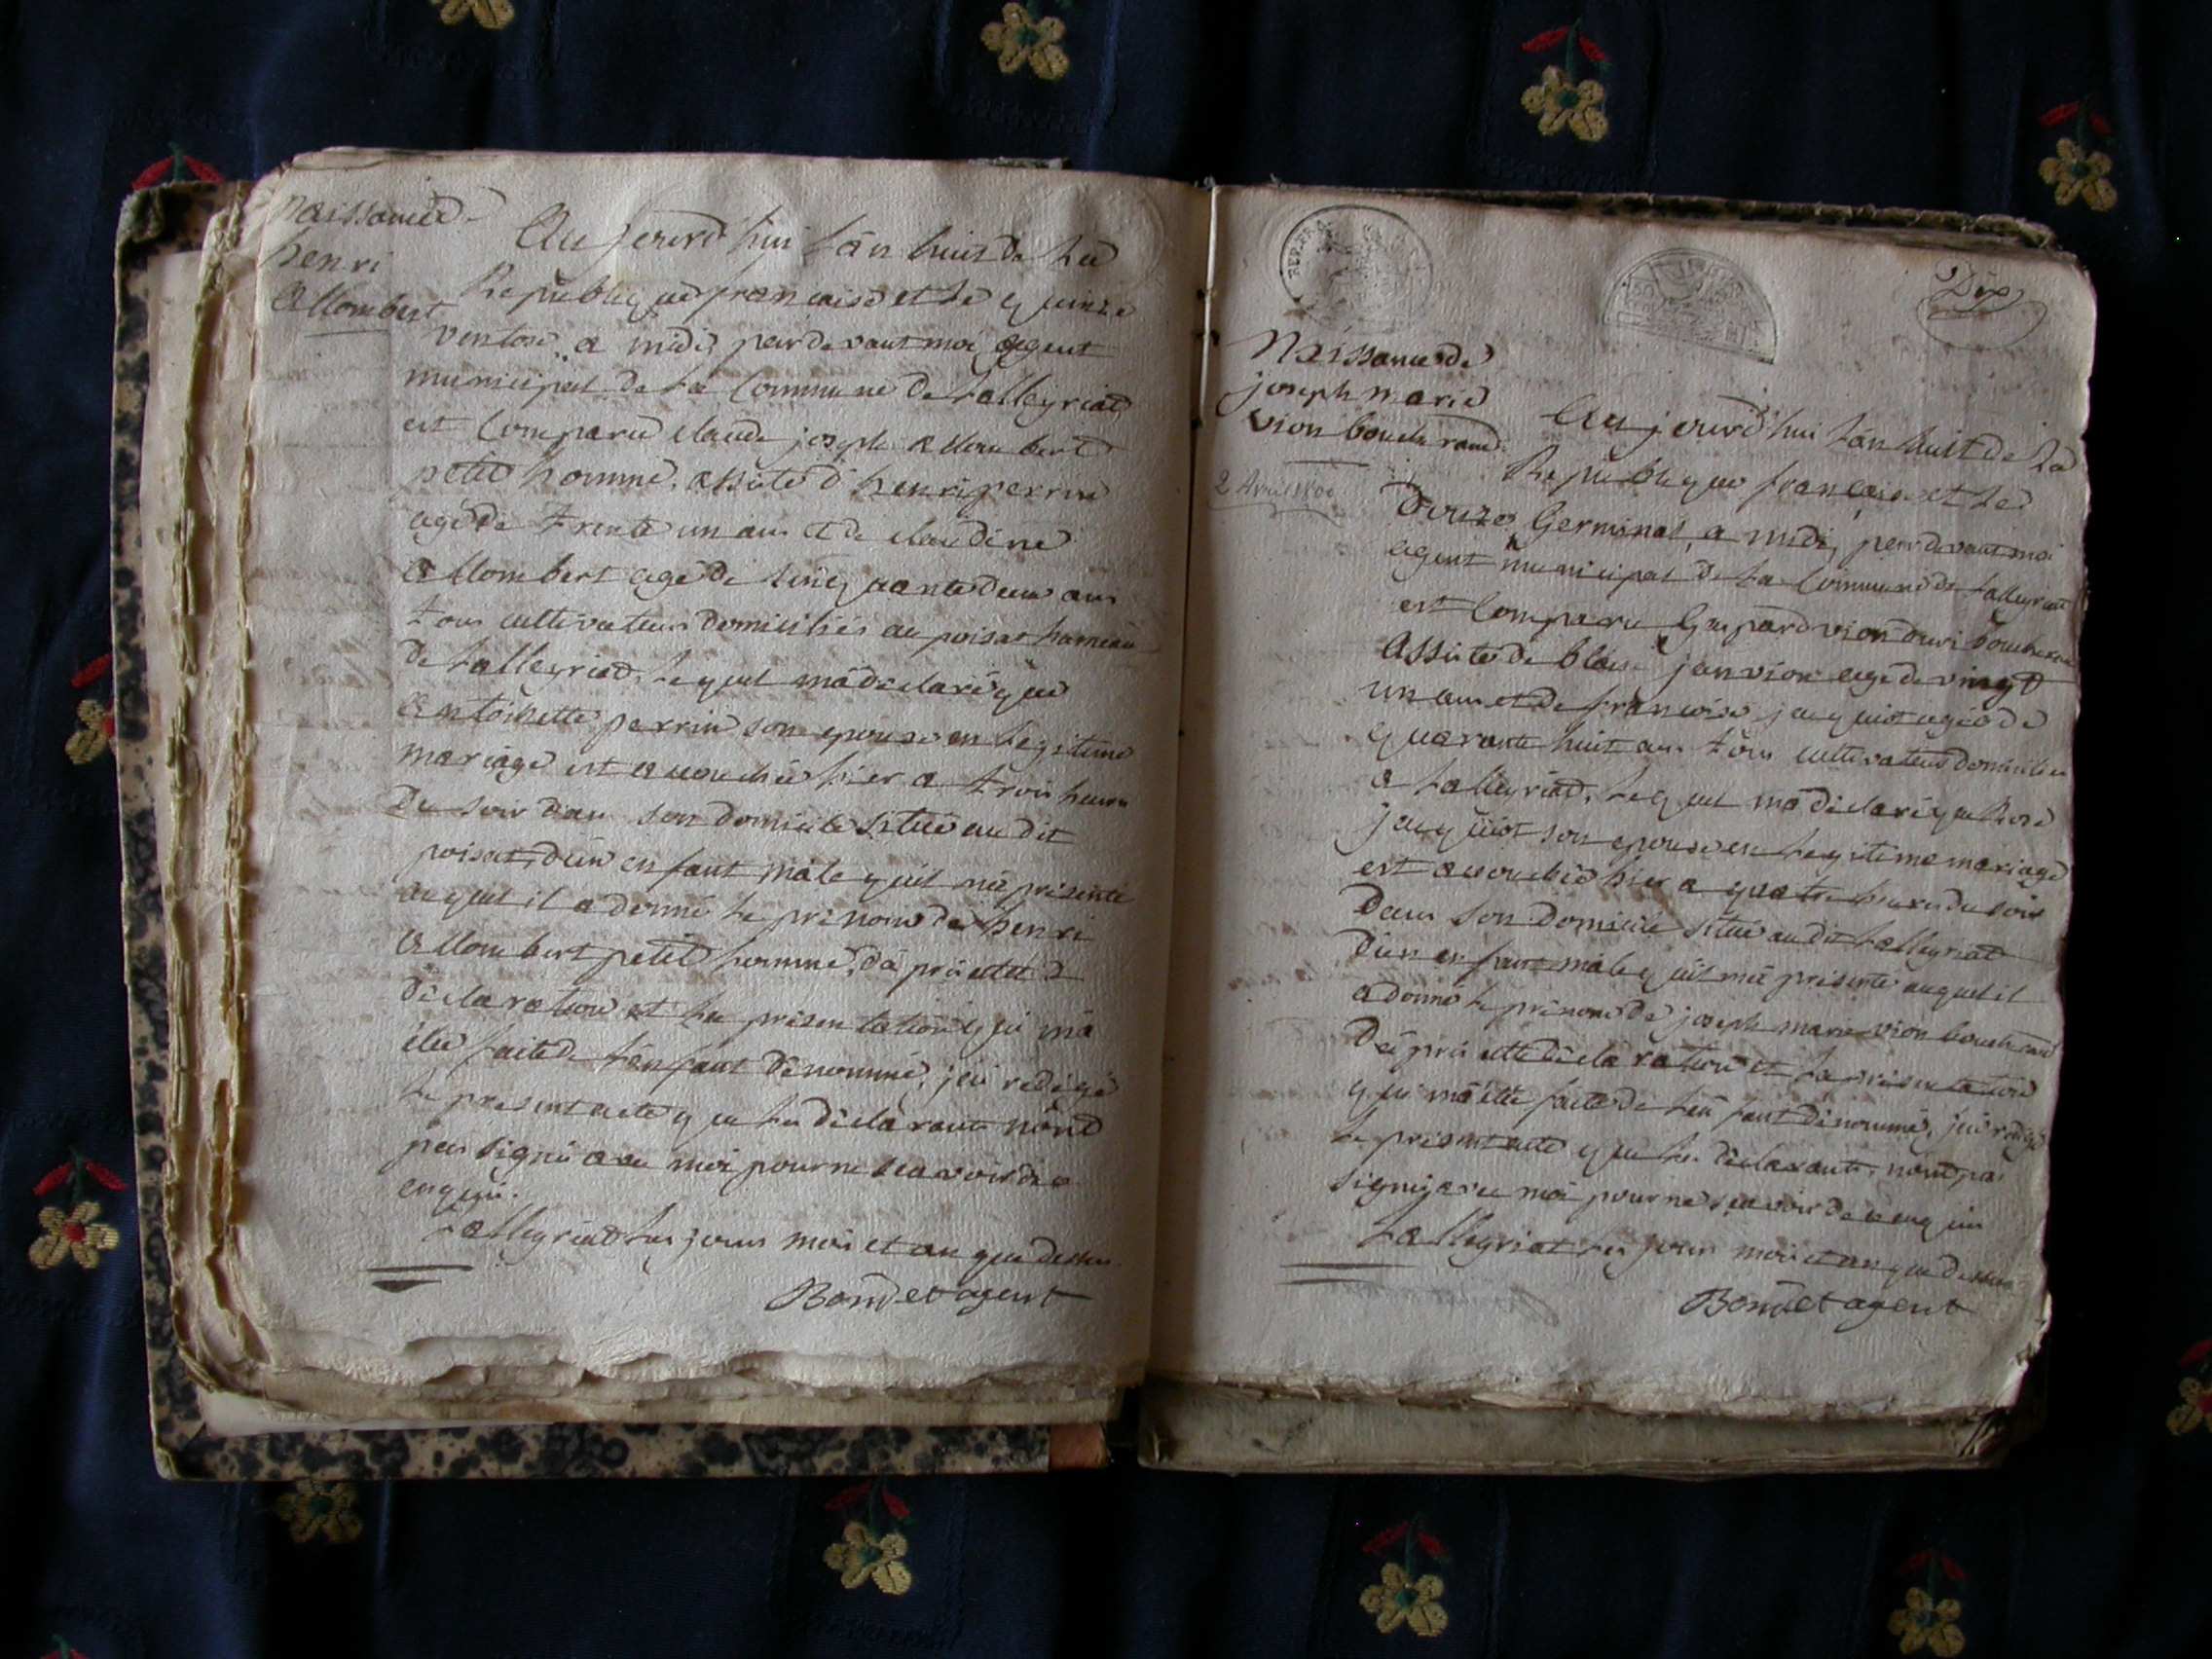 naissance
henri
allombert
Aujourd'hui l'an huit de la
Republique francaise et le quinze
ventose a midi, pardevant moi agent
municipal de la Commune de talleyriat
est Comparu claude joseph allombert
petit homme, assiste d'henri perrin
agé de trente un ans et de claudine
allombert agé de cinquante deux ans
tous cultivateurs domiciliés au poisat hameau
de talleyriat, lequel m'a declaré que
antoinette perrin son epouse en legitime
mariage est accouchée hier a trois heures
du soir dans son domicile situé au dit
poisat, d'un enfant mâle qu'il m'a présenté
auquel il a donné le prenom de henri
allombert petit homme, d'après cette
déclaration et la présentation qui m'a
été faite de l'enfant dénommé, j'ai redigé
le present acte que les déclarants n'ont
pas signé avec moi pour ne sçavoir de ce
enquis.
talleyriat les jours mois et an que dessus.
Bondet agent
Dix
Naissance de
joseph marie
vion bouchrand
2 Avril 1800
Aujourd'hui l'an huit de la
Republique française et le
douze Germinal, a midi, pardevant moi
agent municipal de la Commune de talleyriat
est Comparu Gaspard vion
Assisté de blaise janvion agé de vingt
un ans et de francoise jacquiot agée de
quarante huit ans tous cultivateurs domiciliés
a talleyriat, lequel m'a déclaré que
jacquiot son epouse en legitime mariage
est accouchée hier a quatre heures du soir
dans son domicile situé au dit talleyriat
d'un enfant mâle qu'il m'a présenté auquel il
a donné le prénom de joseph marie vion bouchrand
d'après cette déclaration et la présentation
qui m'a étté faite de l'enfant dénommé, j'ai redigé
le present acte que les déclarants, n'ont pas
signé avec moi pour ne sçavoir de ce enquis
talleyriat les jours mois et an que dessus
Bondet agent